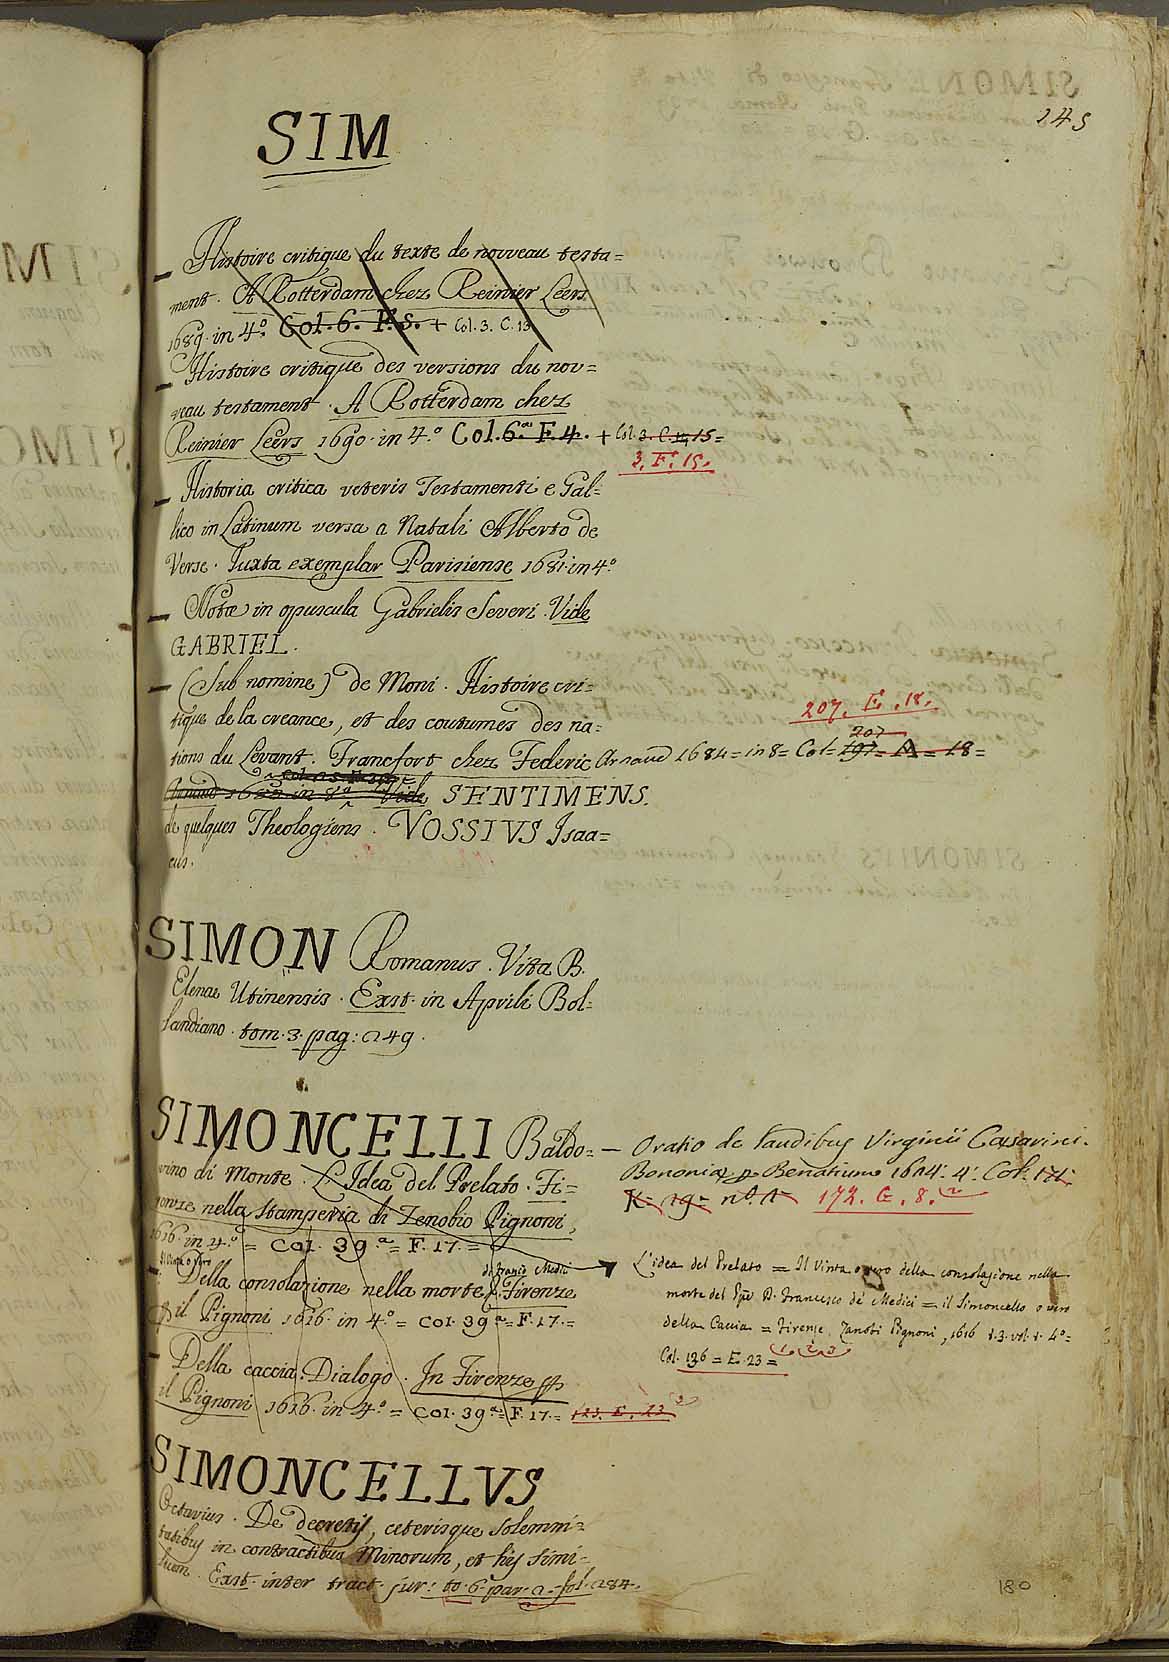 245
SIM
– Histoire critique du texte de nouveau testa=
ment. A Rotterdam chez Reinier Leers
1689. in 4.º Col. 6. F. 5. + Col. 3. C. 13
– Histoire critique des versions du nou=
veau testament. A Rotterdam chez
Reinier Leers 1690. in 4.º Col. 6.ª F. 4. + Col. 3. C. 15=
3. F. 15.
– Historia critica veteris Testamenti e Gal=
lico in Latinum versa a Natali Alberto de
Verse. Juxta exemplar Parisiense 1681. in 4.º
– Notæ in opuscula Gabrielis Severi. Vide
GABRIEL.
– (Sub nomine) de Moni. Histoire cri=
tique de la creance, et des coutumes des na=
207. E. 18.
207
tions du Levant. Francfort chez Federic Arnaud 1684= in 8= Col= 197= A= 18=
Arnaud in 8.º Vide SENTIMENS.
de quelques Theologiens. VOSSIVS Isaa=
cus.
SIMON Romanus. Vita B.
Elenæ Utinensis. Exst. in Aprili Bol=
landiano. tom. 3. pag: 249.
SIMONCELLI Baldo=
vino di Monte. L'Idea del Prelato. Fi=
renze nella Stamperia di Zenobio Pignoni,
1616. in 4.º = Col. 39.ª= F. 17. =
di Franc. Medici
– Della consolazione nella morte Firenze
p il Pignoni 1616. in 4.º = Col. 39.ª= F. 17. =
– Della caccia. Dialogo. In Firenze p
il Pignoni 1616. in 4.º = Col. 39.ª= F. 17. = 123. E. 23
– Oratio de laudibus Virginii Cæsarini.
Bononiæ p Benatium 1624. 4.º Col. 171.
K= 19= nº. 1 172. G. 8.
L'idea del Prelato = Il Vinta overo della consolazione nella
morte del D. Francesco de' Medici = il Simoncello overo
della Caccia = Firenze, Zanobi Pignoni, 1616 t. 3. vol. 1. 4.º=
Col. 136 = E. 23 = 1. 2. 3
SIMONCELLVS
Octavius. De decretis, ceterisque solemni=
tatibus in contractibus Minorum, et his simi=
lium. Exst. inter tract. jur: to. 6. par. 2. fol. 284.
180